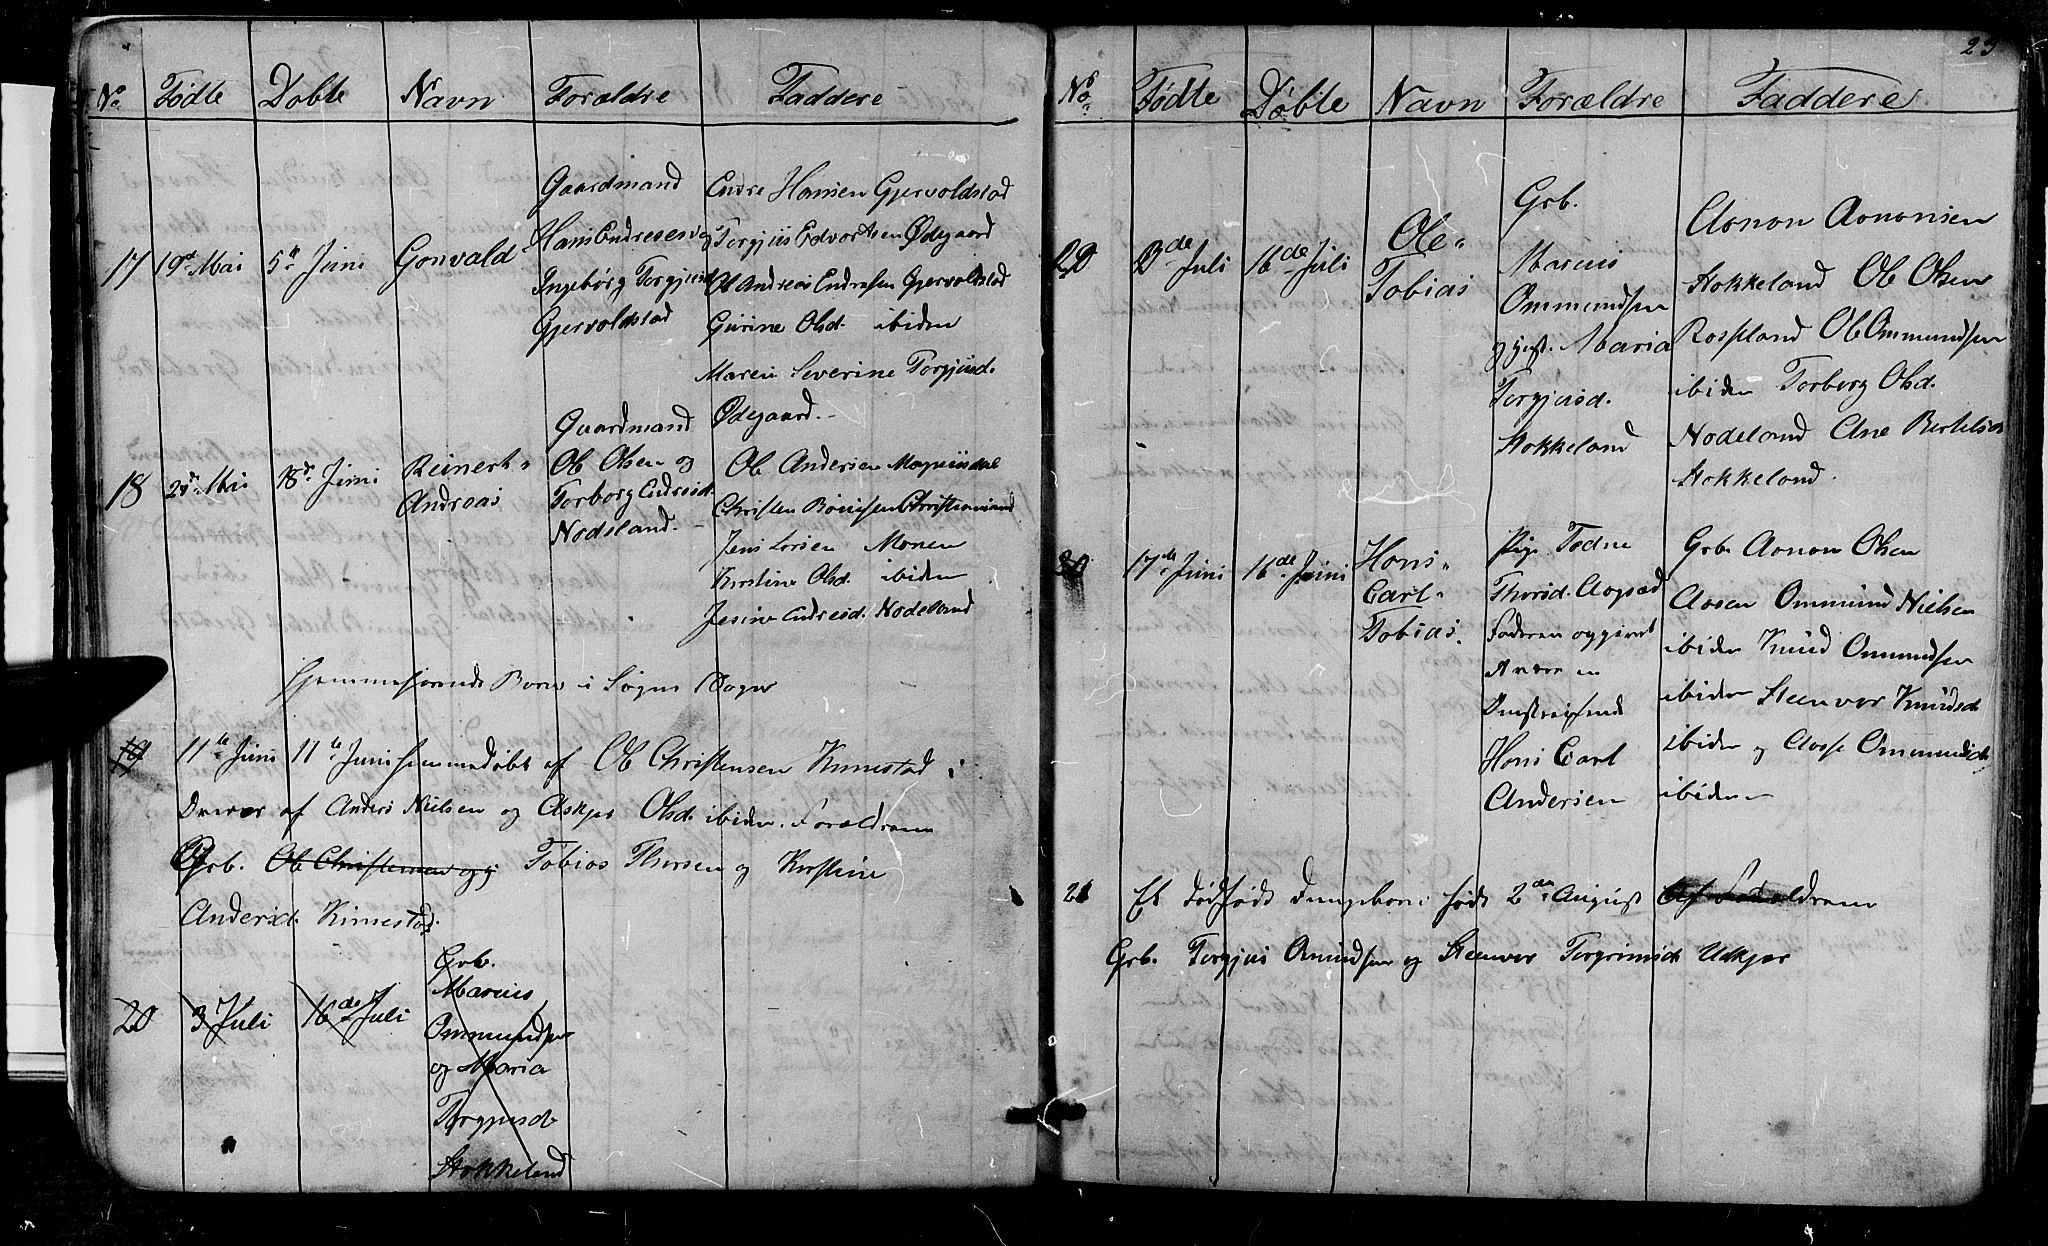 No. Fødte Døbte Navn Forældre Faddere
17 19de Mai 5te Juni Gonvald
Gaardmand
Hans Endresen og
Ingeborg Torgjusd
Gjervoldstad
Endre Hansen Gjervoldstad
Torgjus Edvortsen Ødegaard
Ole Andreas Endresen Gjervoldstad
Gurine Olsd. ibiden
Maren Severine Torgjusd.
Ødegaard.
18 18de Juni Reinert
Andreas
Gaardmand
Ole Olsen og
Torborg Endresd.
Nodeland.
Ole Andersen
Christen Christiansand
Jens Larsen Monen
Kirstine Olsd. ibiden
Jesine Endresd. Nodeland
Hjemmeførende Børn i Søgne Sogn
19 11te Juni 11te Juni hjemmedøbt af Ole Christensen Kimestad i
af Anders Nielsen og Askjer Olsd. ibiden. Forældrene
Grb. Ole Christensen og Tobias Thorsen og Kirstine
Andersd. Kimestad.
20 3 Juli 16de Juli
Grb.
Marcus
Ommundsen
og Maria
Torgjusd.
Stokkeland
23
No. Fødte Døbte Navn Forældre Faddere
3de Juli 16de Juli Ole
Tobias
Grb.
Marcus
Ommundsen
og Maria
Torgjusd.
Stokkeland
Aanon Aanonsen
Stokkeland Ole Olsen
Rosseland Ole Ommundsen
ibiden Torborg Olsd.
Nodeland Ane Bertelsd
Stokkeland.
20 17de Juni 16de Juni Hans
Carl
Tobias.
Pige Todne
Thorsd. Aagsæd
Faderen opgivet
at være en
Hans Carl
Andersen
Grb. Aanon Olsen
Aasen Ommund Nielsen
ibiden Knud Ommundsen
ibiden Steenvor Knudsd.
ibiden og Aase Ommundsd.
ibiden
21 Et dødfødt Drengebarn født 2den August af Forældrene
Grb. Torgjus Omundsen og Steenvor Torgrimsd. Udkjær